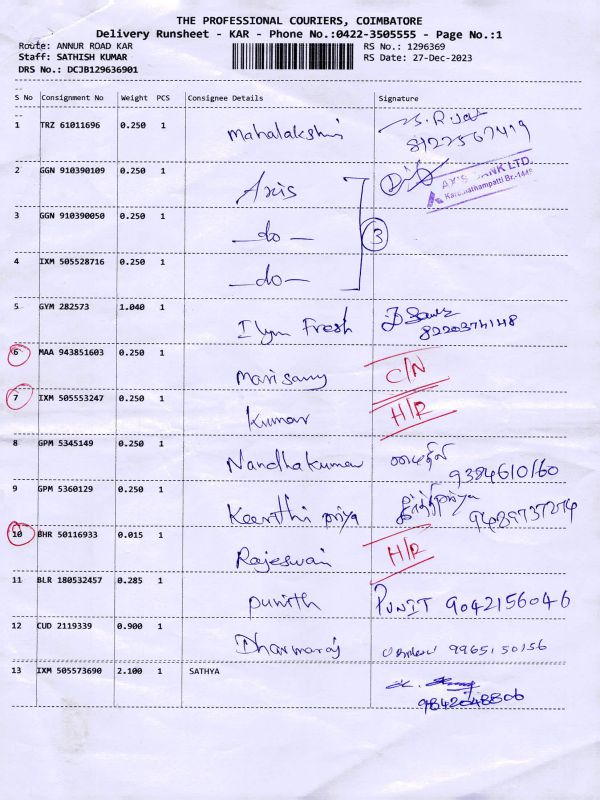 THE PROFESSIONAL COURIERS, COIMBATORE
Delivery Runsheet - KAR - Phone No.:0422-3505555 - Page No.:1
Route: ANNUR ROAD KAR
RS No.: 1296369
Staff: SATHISH KUMAR
RS Date: 27-Dec-2023
DRS No.: DCJB129636901
S No Consignment No Weight PCS Consignee Details Signature
1 TRZ 61011696 0.250 1 Mahalakshmi 8122567419
2 GGN 910390109 0.250 1 Axis 1 AXIS BANK LTD.
Karumathampatti Br.-1448
3 GGN 910390050 0.250 1 —do— 3
4 IXM 505528716 0.250 1 —do—
5 GYM 282573 1.040 1 Ilyn Fresh 8220374148
6 MAA 943851603 0.250 1 Marisamy C/N
7 IXM 505553247 0.250 1 Kumar H/R
8 GPM 5345149 0.250 1 Nandhakumar 9384610160
9 GPM 5360129 0.250 1 Keerthi priya கீர்த்திப்ரியா 9489737274
10 BHR 50116933 0.015 1 Rajeswari H/R
11 BLR 180532457 0.285 1 punith PUNIT 9042156046
12 CUD 2119339 0.900 1 Dharmaraj 9965150156
13 IXM 505573690 2.100 1 SATHYA 9842048806